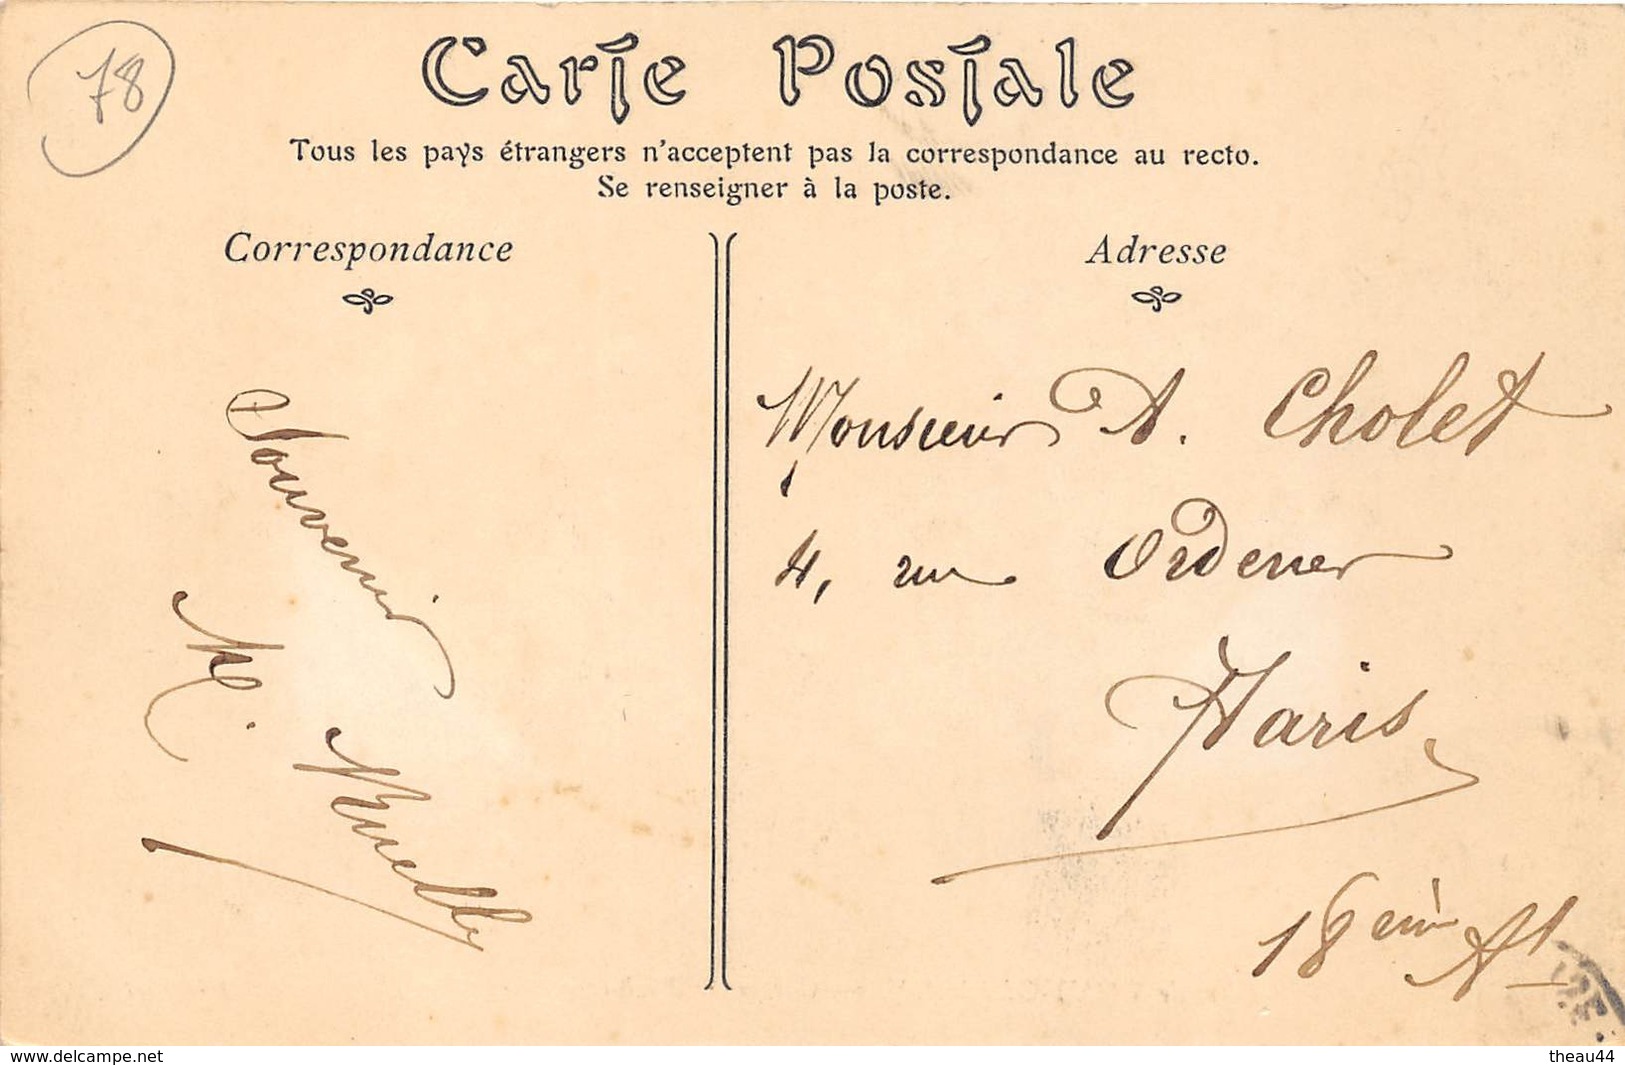 78
Carte Postale
Tous les pays étrangers n'acceptent pas la correspondance au recto.
Se renseigner à la poste.
Correspondance
Souvenir
M.
Adresse
Monsieur A. Cholet
4, rue Ordener
Paris
18eme At
www.delcampe.net
theau44